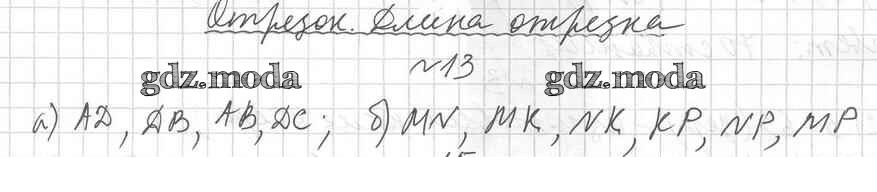 Отрезок. Длина отрезка
№13
gdz.moda gdz.moda
а) AD, DB, AB, DC; б) MN, MK, NK, KP, NP, MP